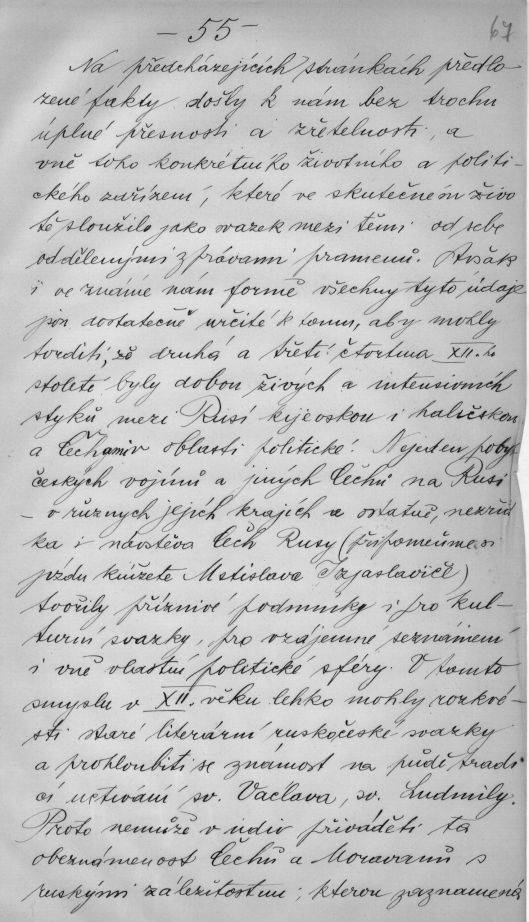 - 55 -
67
Na předcházejících stránkách předlo
žené fakty došly k nám bez trochu
úplné přesnosti a zřetelnosti, a
vně toho konkrétního životního a politi-
ckého zařízení, které ve skutečném živo
tě sloužilo jako svazek mezi těmi od sebe
oddělenými zprávami pramenů. Avšak
i ve známé nám formě všechny tyto údaje
jsou dostatečně určité k tomu, aby mohly
tvrditi, že druhá a třetí čtvrtina XII.ho
století byly dobou živých a intensivních
styků mezi Rusí kijevskou i haličskou
a Čechami v oblasti politické. Nejeden poby
českých vojínů a jiných Čechů na Rusi
- v různych jejích krajích a ostatně, nezříd
ka i návštěva Čech Rusy (připomeňme si
jízdu knížete Mstislava Izjaslaviče)
tvořily příznivé podmínky i pro kul-
turní svazky, pro vzájemné seznámení
i vně vlastní politické sféry. V tomto
smyslu v XII. věku lehko mohly rozkvé-
sti staré literární ruskočeské svazky
a prohloubiti se známost na půdě tradi
cí uctívání sv. Václava, sv. Ludmily.
Proto nemůže v údiv přiváděti ta
obeznámenost Čechů a Moravanů s
ruskými záležitostmi, kterou zaznamená